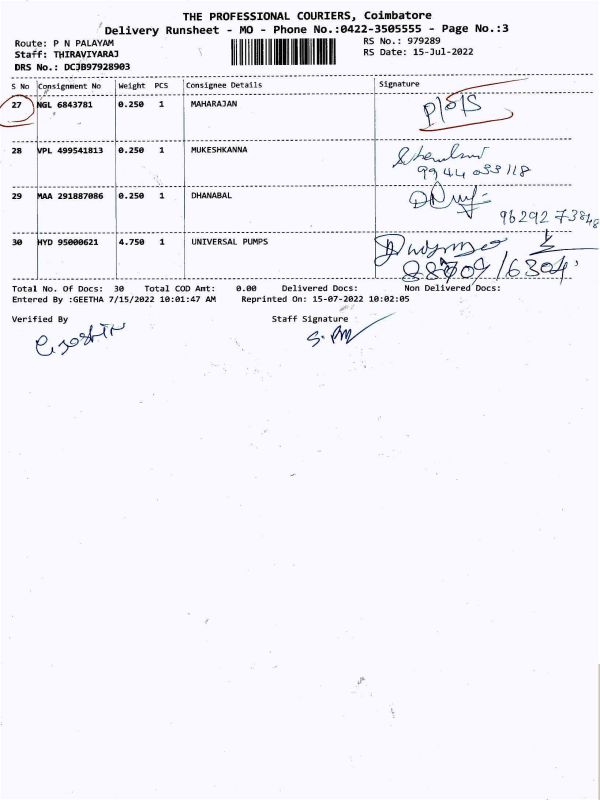 THE PROFESSIONAL COURIERS, Coimbatore
Delivery Runsheet - MO - Phone No.:0422-3505555 - Page No.:3
Route: P N PALAYAM RS No.: 979289
Staff: THIRAVIYARAJ RS Date: 15-Jul-2022
DRS No.: DCJB97928903
S No Consignment No Weight PCS Consignee Details Signature
27 NGL 6843781 0.250 1 MAHARAJAN P/S/S
28 VPL 499541813 0.250 1 MUKESHKANNA
9944 033118
29 MAA 291887086 0.250 1 DHANABAL
96292 73848
30 HYD 95000621 4.750 1 UNIVERSAL PUMPS
Total No. Of Docs: 30 Total COD Amt: 0.00 Delivered Docs: Non Delivered Docs:
Entered By :GEETHA 7/15/2022 10:01:47 AM Reprinted On: 15-07-2022 10:02:05
Verified By Staff Signature